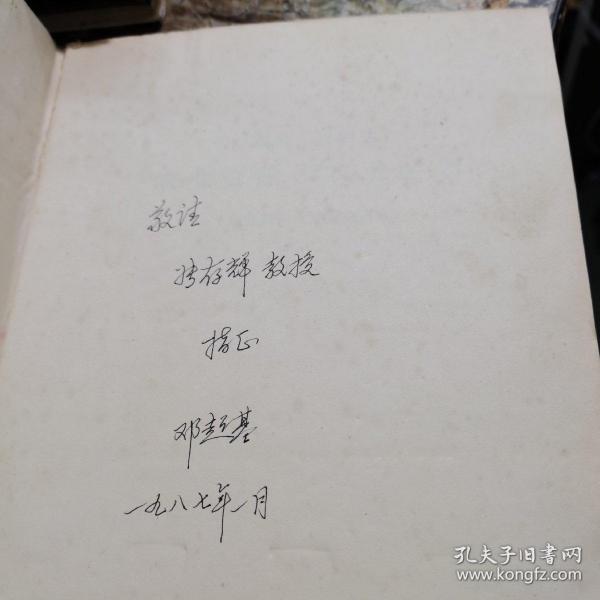 敬请
存辉教授
指正
邓起基
一九八七年一月
孔夫子旧書网
www.kongfz.com